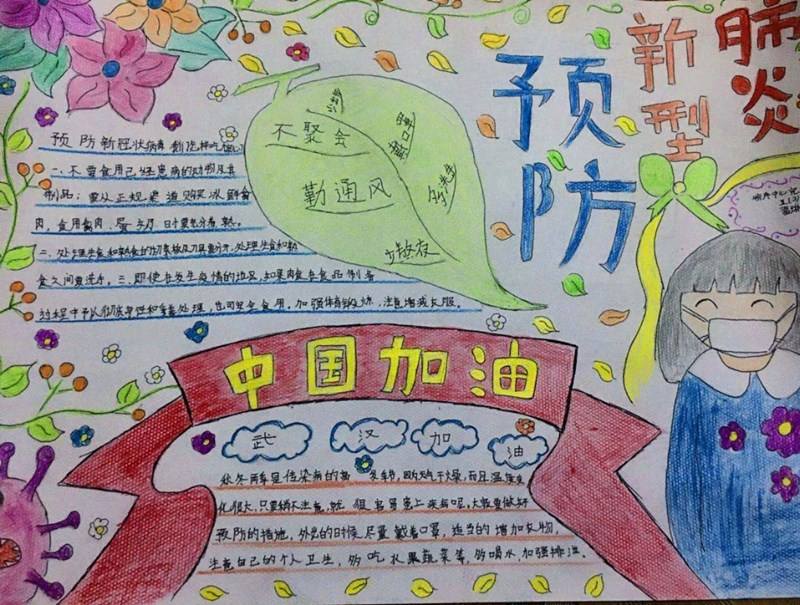 预防
新型
肺炎
不聚会
勤通风
戴口罩
多洗手
预防新冠状病毒
一、不要食用已经患病的动物及其
制品；要从正规渠道购买冰鲜禽
肉，食用禽肉、蛋、奶，时要充分煮熟。
二、处理生食和熟食的切菜板及刀具要分开。处理生食和熟
食之间要洗手。三、即使在发生疫情的地区，如果肉食在食品制备
过程中予以彻底烹饪和妥善处理，也可安全食用。加强体育锻炼，注意增减衣服。
中国加油
武汉加油
秋冬两季是传染病的高发季节，因为天气干燥，而且温度变
化很大，只要稍不注意，就很容易患上疾病呢，大家要做好
预防的措施，外出的时候尽量戴着口罩，适当的增加衣物，
注意自己的个人卫生，多吃水果蔬菜等，多喝水，加强排湿。